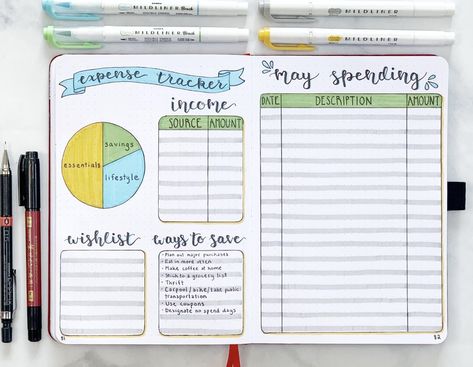 MILDLINER Brush
MILDLINER
MILDLINER Brush
MILDLINER
expense tracker
income
SOURCE AMOUNT
essentials
savings
lifestyle
wishlist
ways to save
• Plan out major purchases
• Eat in more often
• Make coffee at home
• Stick to a grocery list
• Thrift
• Carpool/bike/take public
transportation
• Use coupons
• Designate no spend days
81
may spending
DATE DESCRIPTION AMOUNT
82